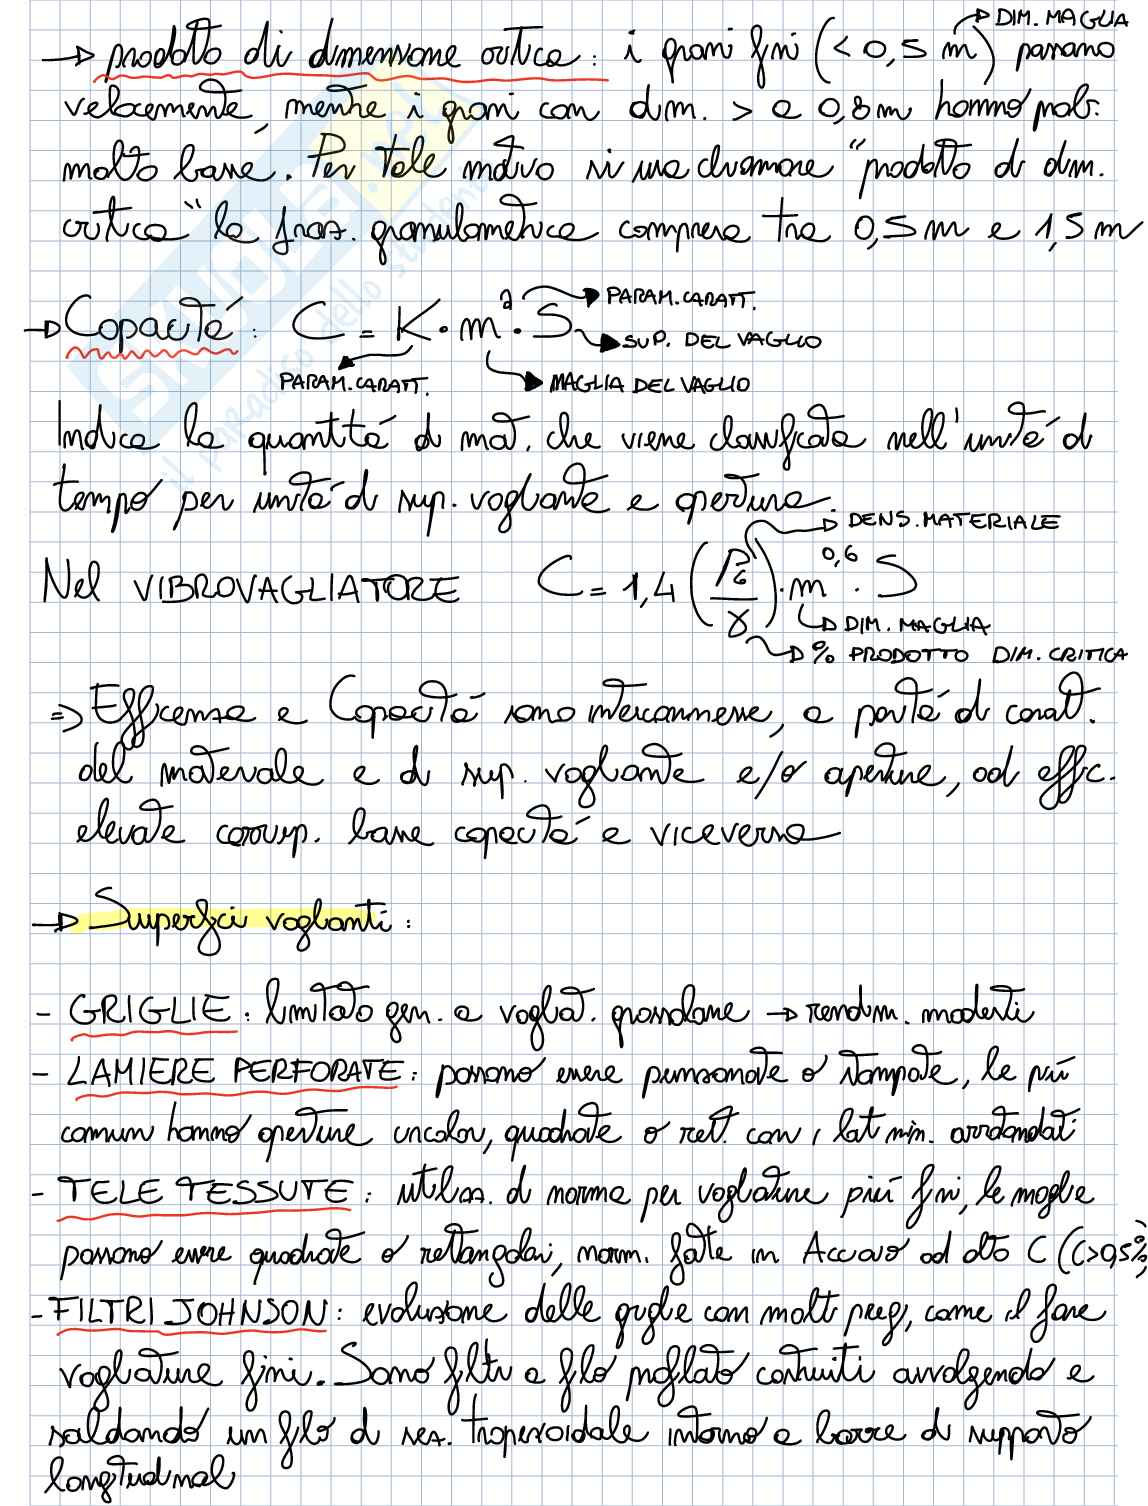 → DIM. MAGLIA
→ prodotto di dimensione critica : i grani fini (< 0,5 m) passano
velocemente, mentre i grani con dim. > a 0,8 m hanno prob.
molto basse. Per tale motivo si usa chiamare "prodotto di dim.
critica" la fraz. granulometrica compresa tra 0,5 m e 1,5 m
→ PARAM. CARATT.
→ Capacità : C = K · m^a · S
→ SUP. DEL VAGLIO
PARAM. CARATT.
→ MAGLIA DEL VAGLIO
Indica la quantità di mat. che viene classificata nell'unità di
tempo per unità di sup. vagliante e apertura.
→ DENS. MATERIALE
Nel VIBROVAGLIATORE C = 1,4 (/γ) · m^0,6 · S
→ DIM. MAGLIA
→ % PRODOTTO DIM. CRITICA
⇒ Efficienza e Capacità sono interconnesse, a parità di caratt.
del materiale e di sup. vagliante e/o aperture, ad effic.
elevate corrisp. basse capacità e viceversa
→ Superfici vaglianti :
- GRIGLIE : limitato gen. a vagliat. grossolane → rendim. modesti
- LAMIERE PERFORATE : possono essere punzonate o stampate, le più
comuni hanno aperture circolari, quadrate o rett. con i lati min. arrotondati
- TELE TESSUTE : utilizz. di norma per vagliature più fini, le maglie
possono essere quadrate o rettangolari, norm. fatte in Acciaio ad alto C (C>0,5%)
- FILTRI JOHNSON : evoluzione delle griglie con molti pregi, come il fare
vagliature fini. Sono filtri a filo profilato costruiti avvolgendo e
saldando un filo di sez. trapezoidale intorno a barre di supporto
longitudinali